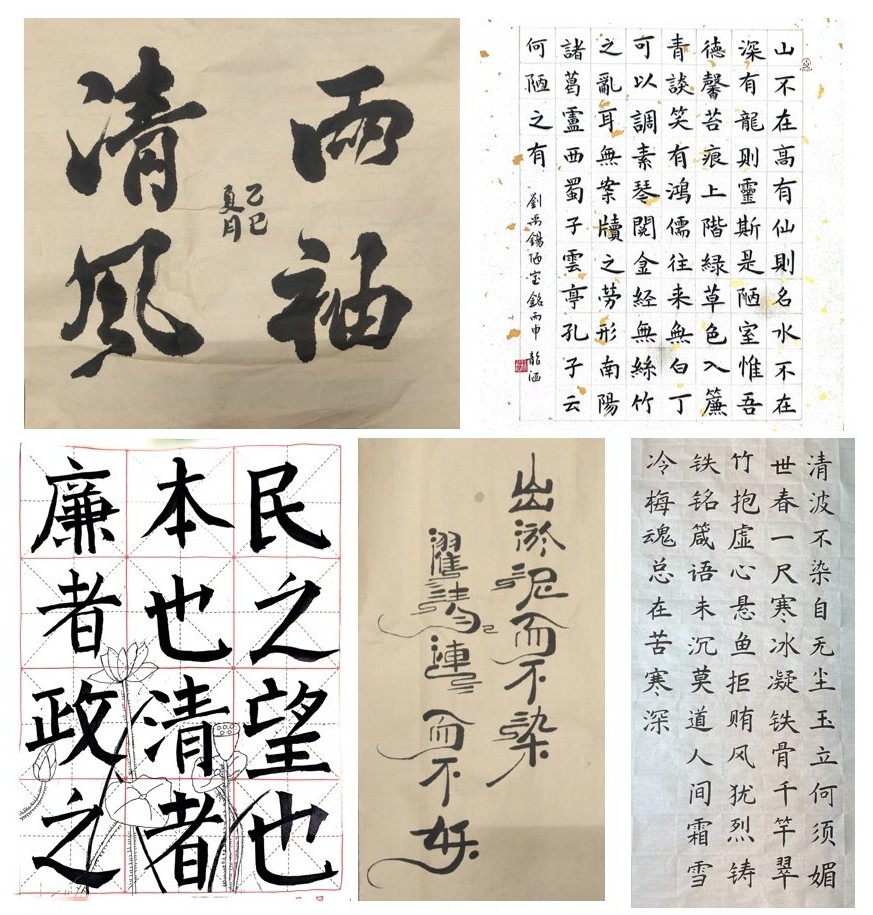 兩袖
清風
乙巳
夏月
山不在高有仙則名水不在
深有龍則靈斯是陋室惟吾
德馨苔痕上階緑草色入簾
青談笑有鴻儒往来無白丁
可以調素琴閲金經無絲竹
之亂耳無案牘之勞形南陽
諸葛廬西蜀子雲亭孔子云
何陋之有
劉禹錫陋室銘丙申
民之望也
本也清者
廉者政之
出淤泥而不染
濯清漣而不妖
清波不染自无尘玉立何须媚
世春一尺寒冰凝铁骨千竿翠
竹抱虚心悬鱼拒贿风犹烈铸
铁铭箴语未沉莫道人间霜雪
冷梅魂总在苦寒深